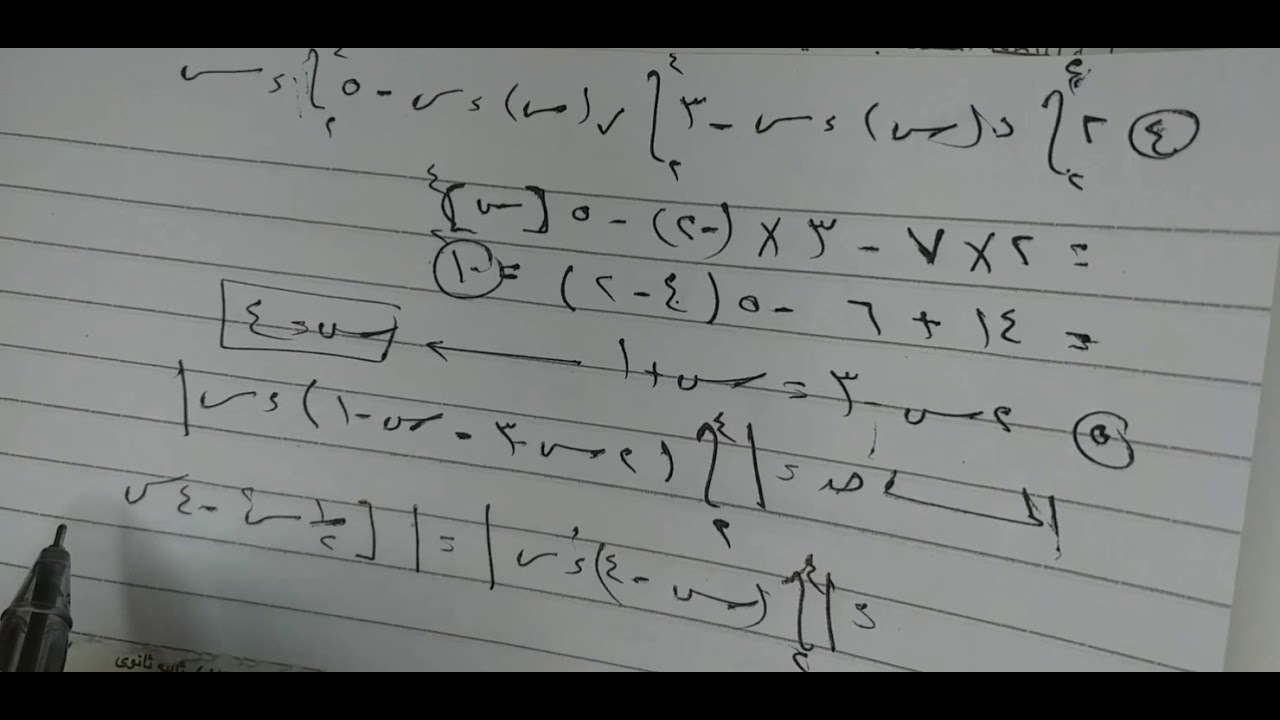 ④ ٢ ∫٢^٤ د(س) ءس - ٣ ∫٢^٤ ر(س) ءس - ٥ ∫٢^٤ ءس
= ٢ × ٧ - ٣ × (-٢) - ٥ [س]٢^٤
= ١٤ + ٦ - ٥ (٤ - ٢) = ١٠
⑤ ٢س - ٣ = س + ١ ← س = ٤
المساحة = | ∫٢^٤ (٢س - ٣ - س - ١) ءس |
= | ∫٢^٤ (س - ٤) ءس | = | [ ١/٢ س٢ - ٤س
ثانوي